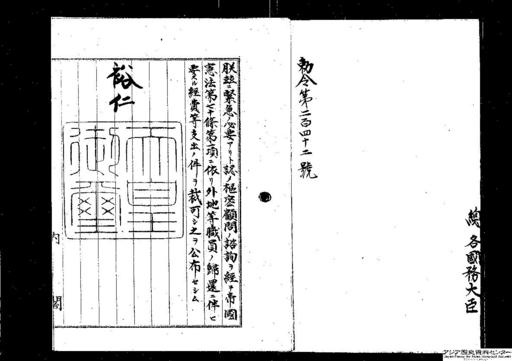 總各國務大臣
勅令第二百四十二號
朕玆ニ緊急ノ必要アリト認メ樞密顧問ノ諮詢ヲ經テ帝國
憲法第七十條第一項ニ依リ外地等職員ノ歸還ニ伴ヒ
要スル經費等支出ノ件ヲ裁可シ之ヲ公布セシム
裕仁
天皇御璽
内閣
アジア歴史資料センター
Japan Center for Asian Historical Records